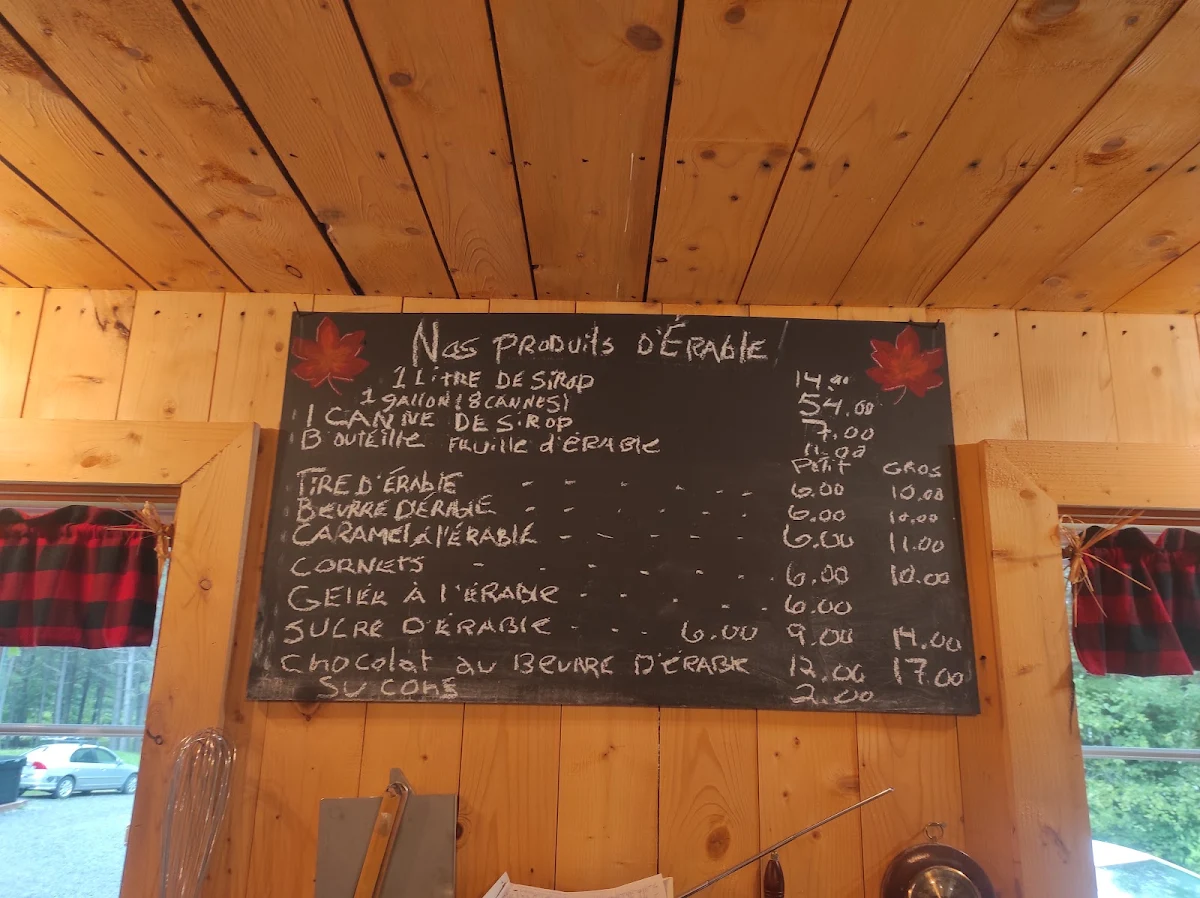 Nos PRODUits D'ÉRABLE
1 LitRE DE SiROP 14.00
1 gallon (8 CANNES) 54.00
1 CANNE DE SiROP 7.00
BOUTEILLE FEUille d'ÉRABLE 11.00
PEtit GROS
TIRE D'ÉRABLE - - - - - 6.00 10.00
BEURRE D'ÉRABLE - - - - - 6.00 10.00
CARAMEL à l'ÉRABLE - - - - - 6.00 11.00
CORNETS - - - - - - 6.00 10.00
GELÉE À l'ÉRABLE - - - - - 6.00
SUCRE D'ÉRABLE - - - 6.00 9.00 14.00
CHOCOLAT au BEURRE D'ÉRABLE 12.00 17.00
SUCONS 2.00